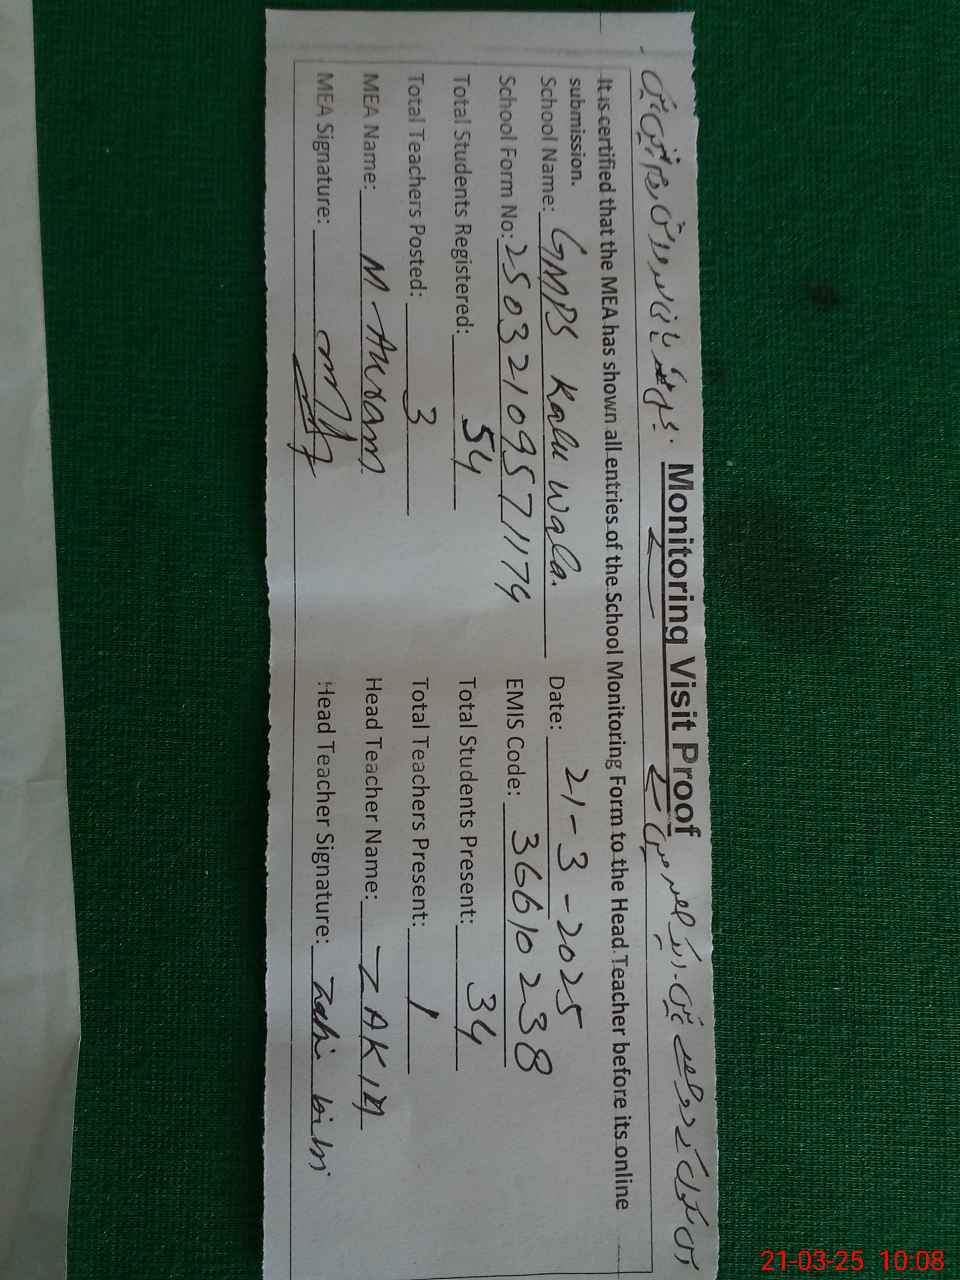 Monitoring Visit Proof
It is certified that the MEA has shown all entries of the School Monitoring Form to the Head Teacher before its online
submission.
School Name: GMPS Kalu Wala. Date: 21-3-2025
School Form No: 25032109571179 EMIS Code: 36610238
Total Students Registered: 54 Total Students Present: 34
Total Teachers Posted: 3 Total Teachers Present: 1
MEA Name: M. Akram Head Teacher Name: ZAKIA
MEA Signature: Head Teacher Signature: bibi
21-03-25 10:08